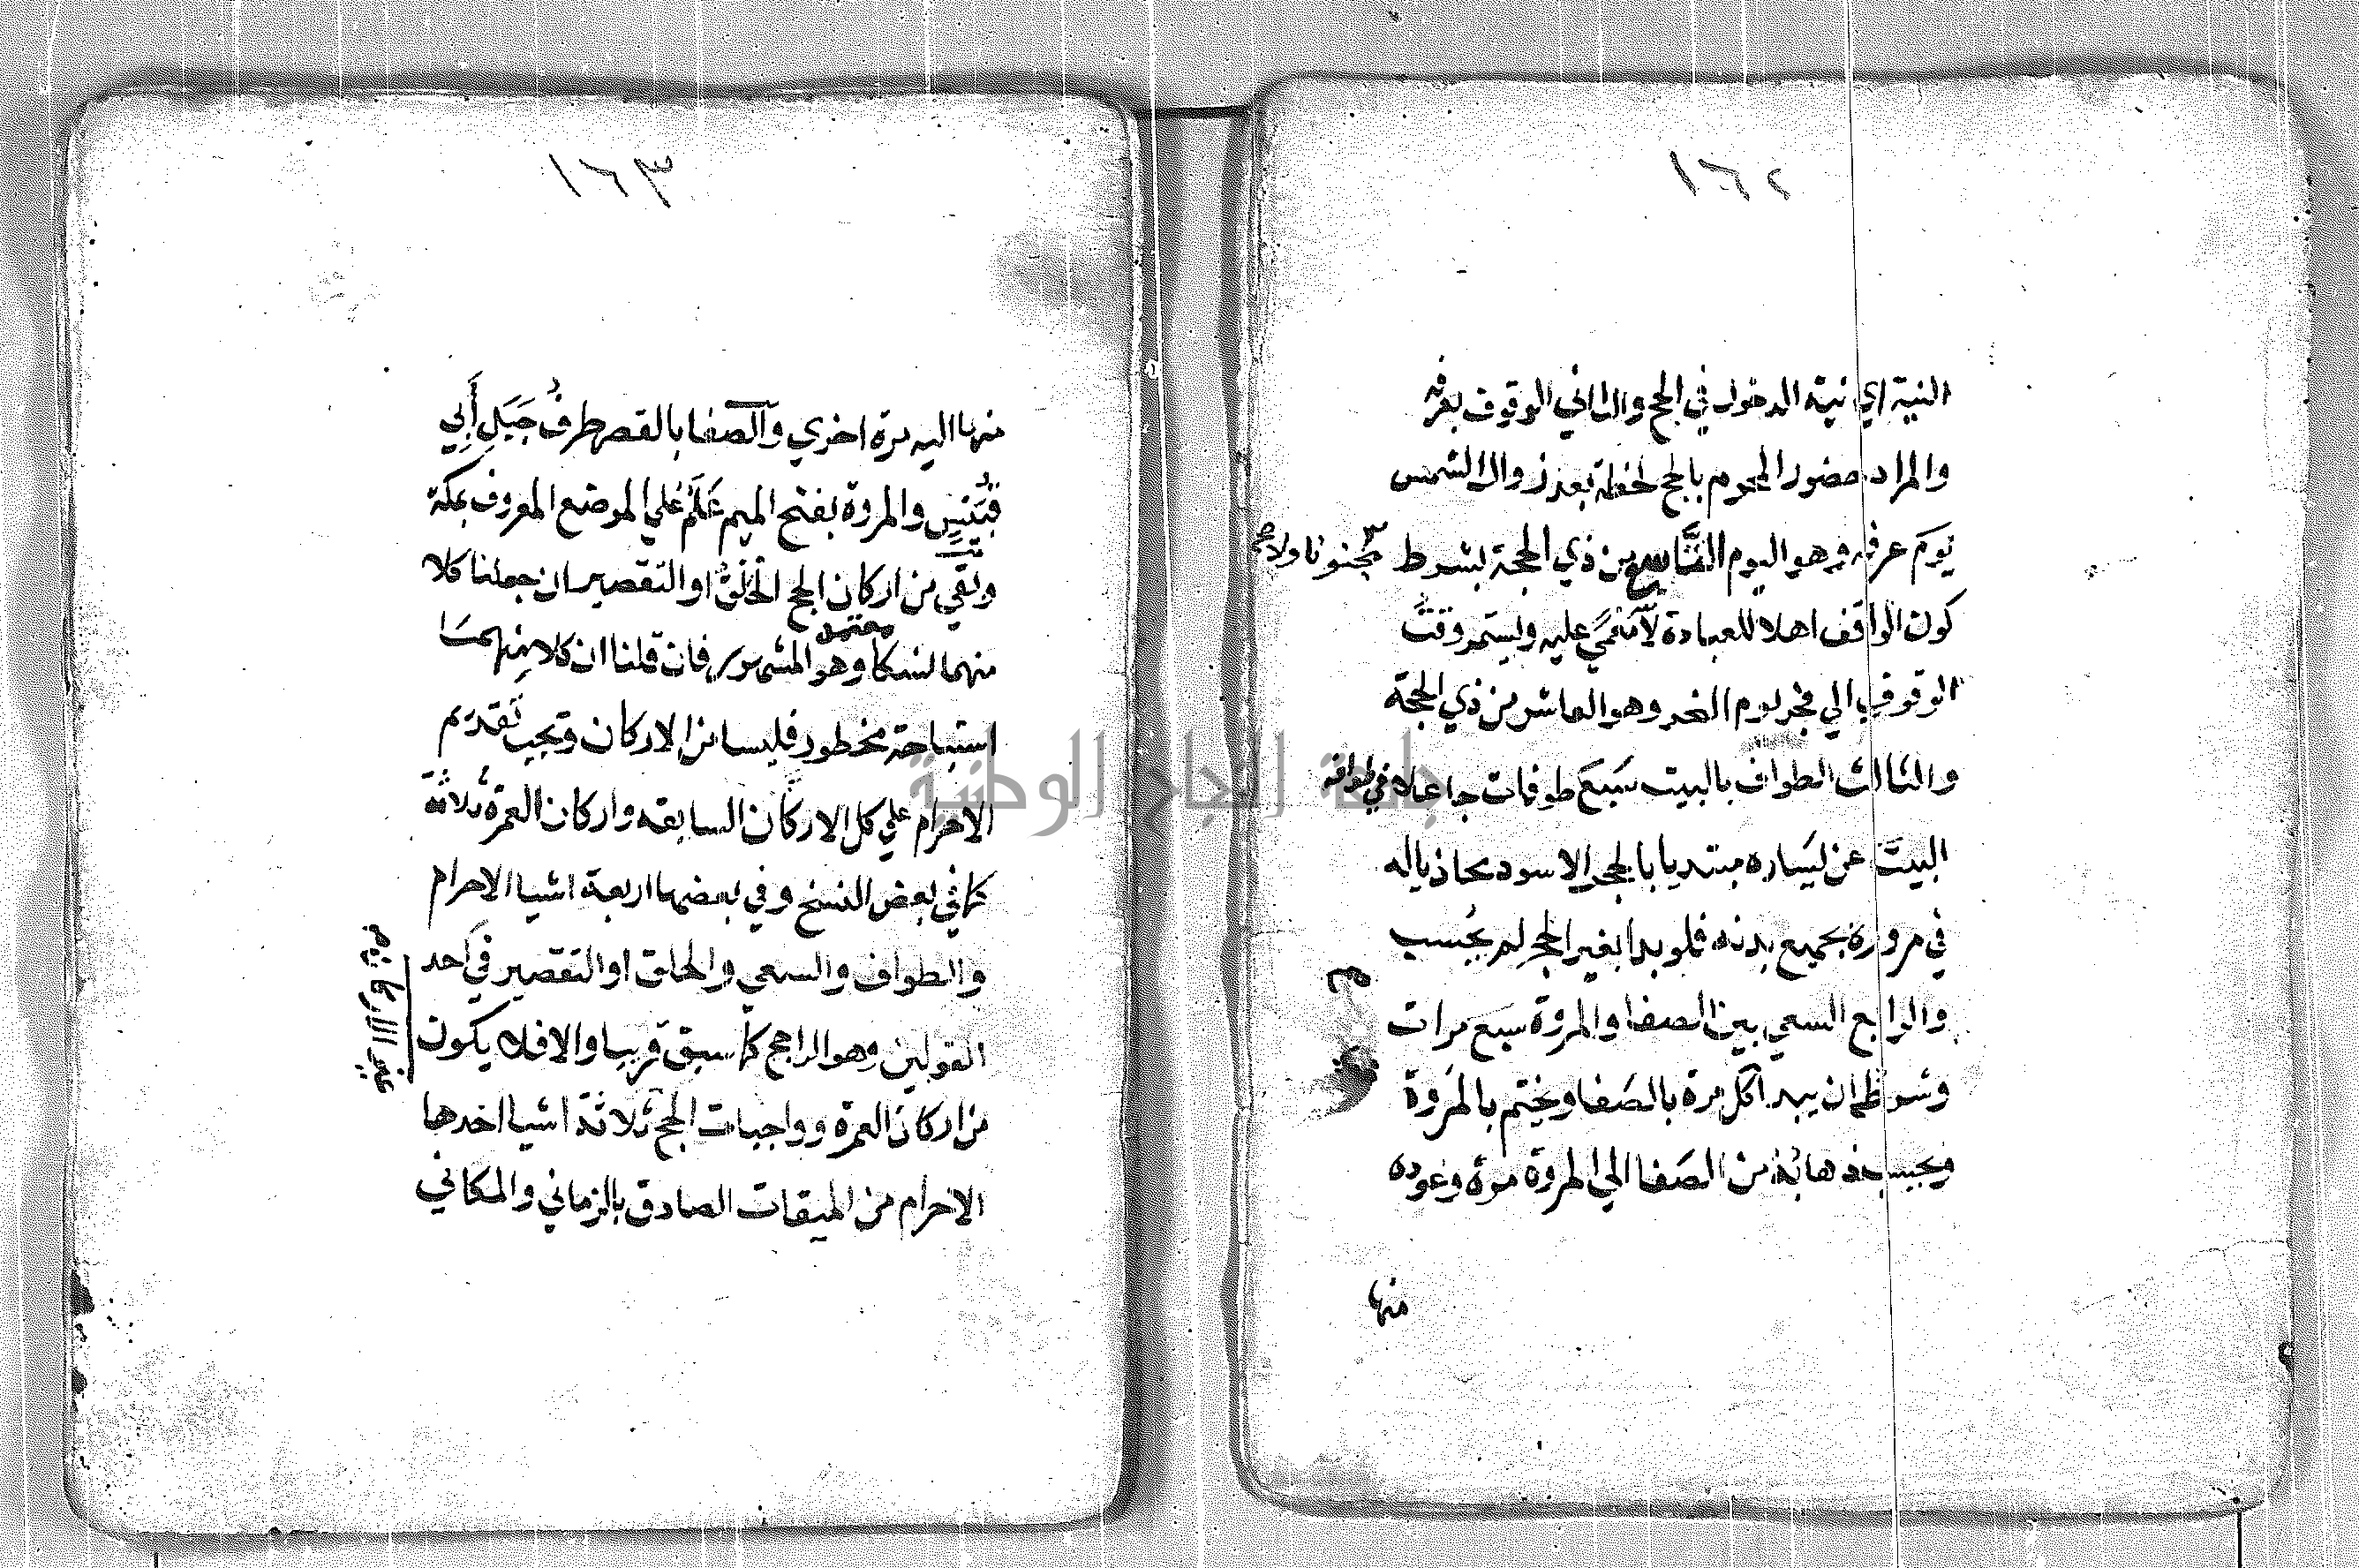 ١٦٢
النية اي نية الدخول في الحج والثاني الوقوف بعرفه
والمراد حضور المحرم بالحج لحظة بعد زوال الشمس
يوم عرفه وهو اليوم التاسع من ذي الحجة بشرط
كون الواقف اهلا للعبادة لا مغمي عليه ويستمر وقت
الوقوف الي فجر يوم النحر وهو العاشر من ذي الحجة
والثالث الطواف بالبيت سبع طوفات جاعلا في طوافه
البيت عن يساره مبتديا بالحجر الاسود محاذياله
في مروره بجميع بدنه فلو بدا بغير الحجر لم يحسب
والرابع السعي بين الصفا والمروة سبع مرات
وشرطه ان يبدا كل مرة بالصفا ويختم بالمروة
ويحسب ذهابه من الصفا الي المروة مرة وعوده
منها
١٦٣
منها اليه مرة اخري والصفا بالقصر طرف جبل أبي
قبيس والمروة بفتح الميم علم علي الموضع المعروف بمكة
وبقي من اركان الحج الحلق او التقصير ان جعلنا كلا
معتمد
منهما نسكا وهو المشهور فان قلنا ان كلا منهما
استباحة محظور فليسا من الاركان ويجب تقديم
الاحرام علي كل الاركان السابقه واركان العمرة ثلاثة
كما في بعض النسخ وفي بعضها اربعة اشيا الاحرام
والطواف والسعي والحلق او التقصير في احد
القولين وهو الراجح كما سبق قريبا والا فلا يكون
من اركان العمرة وواجبات الحج ثلاثة اشيا احدها
الاحرام من الميقات الصادق بالزماني والمكاني
جامعة النجاح الوطنية